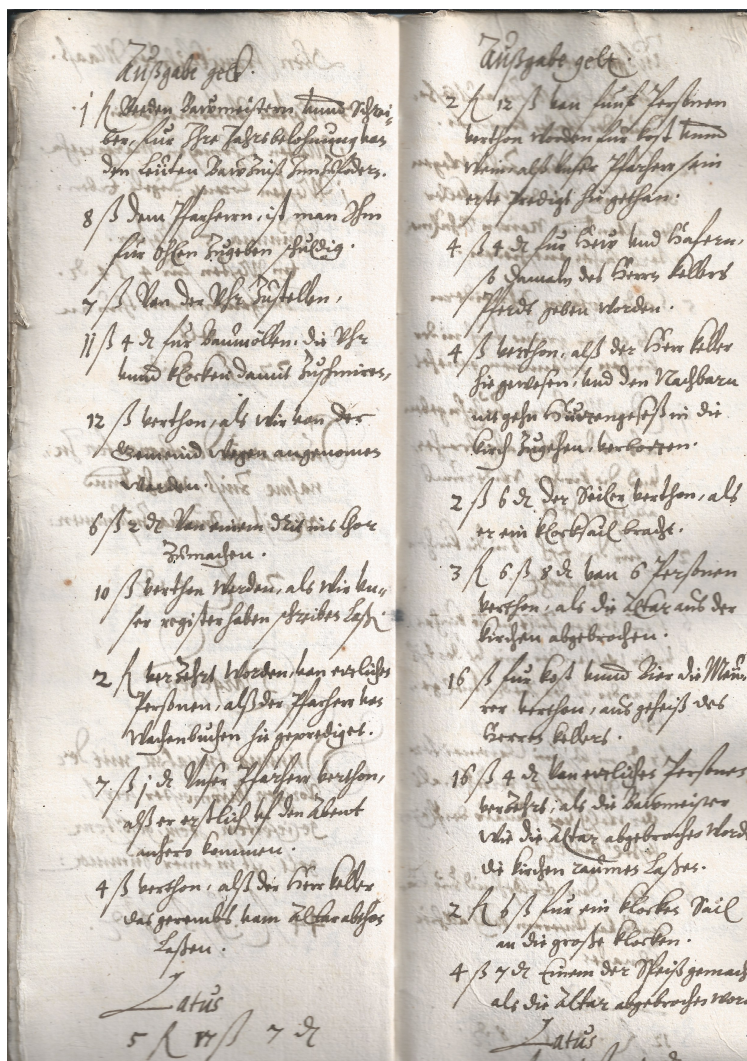 Außgabe gelt.
1 fl Beeden Bawmeistern unnd Schrei-
ber, für Ihre Jahrsbelohnung von
den leuten
8 ß dem Pfarherrn, ist man Ihm
für zugeben schuldig.
7 ß Von der Uhr Zustellen,
11 ß 4 d für Baumöllen, die Uhr
unnd klocken damit Zuschmiren,
12 ß verthon, als wir von der
Gemeind wegen angenomen
worden.
6 ß 2 d Von einem ins Chor
Zumachen.
10 ß verthon worden, als wir un-
ser register haben schreiben laßen
2 fl verzehrt worden, von etlichen
Personen, alß der Pfarherr von
Wachenbuchen hie geprediget.
7 ß 1 d Unser Pfarherr verthon,
alß er erstlich uf den Abent
anhero kommen.
4 ß verthon, alß der Herr keller
das gerembs vom Altar abthon
laßen.
Latus
5 fl 17 ß 7 d
Außgabe gelt.
2 fl 12 ß von fünf Personen
verthon worden für kost unnd
wein alß unser Pfarherr sein
erste Predigt hie gethan.
4 ß 4 d für Hew und Hafern,
so damaln des Herrn kellers
Pferdt geben worden.
4 ß verthon, alß der Herr keller
hie gewesen, und den Nachbarn
in die
kirch Zugehen, verbotten.
2 ß 6 d der Seiler verthon, als
er ein klocksail bracht.
3 fl 6 ß 8 d von 6 Personen
verthon, als die Altar aus der
kirchen abgebrochen.
16 ß für kost unnd Bier die Meu-
rer verthon, aus geheiß des
Herrn kellers.
16 ß 4 d Von etlichen Personen
verzehrt, als die Bawmeister
wie die Altar abgebrochen word
die kirchen raumen laßen.
2 fl 6 ß für ein klocken Sail
an die große klocken.
4 ß 7 d Einem der Speiß gemacht
als die Altar abgebrochen word
Latus